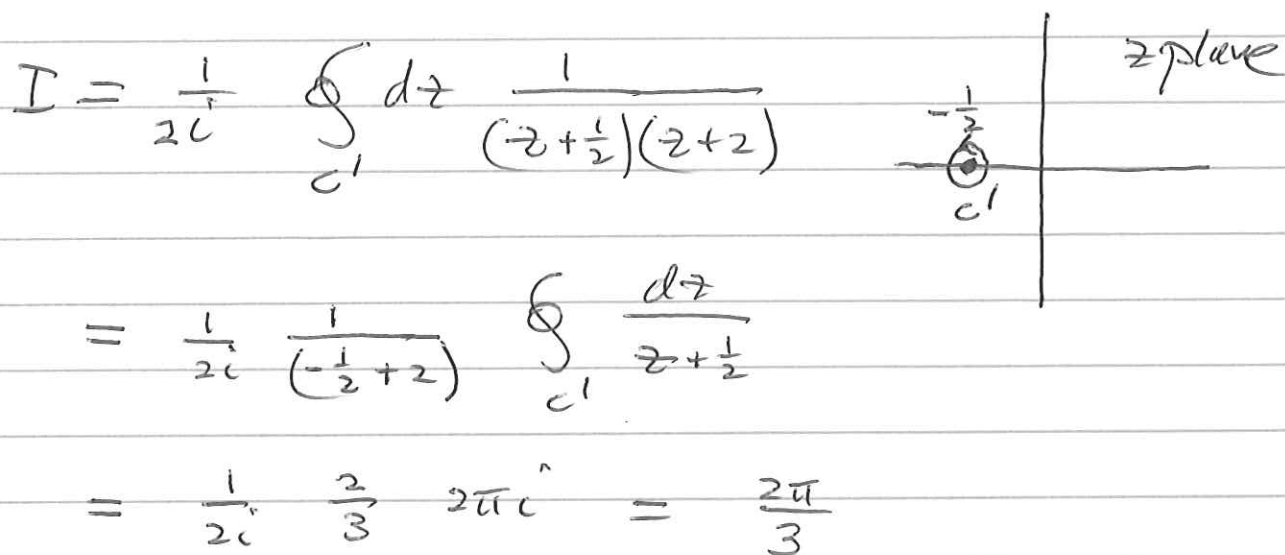 I = 1/2i ∮_c' dz 1/((z+1/2)(z+2))
z plane
-1/2
c'
= 1/2i 1/(-1/2+2) ∮_c' dz/(z+1/2)
= 1/2i 2/3 2πi = 2π/3